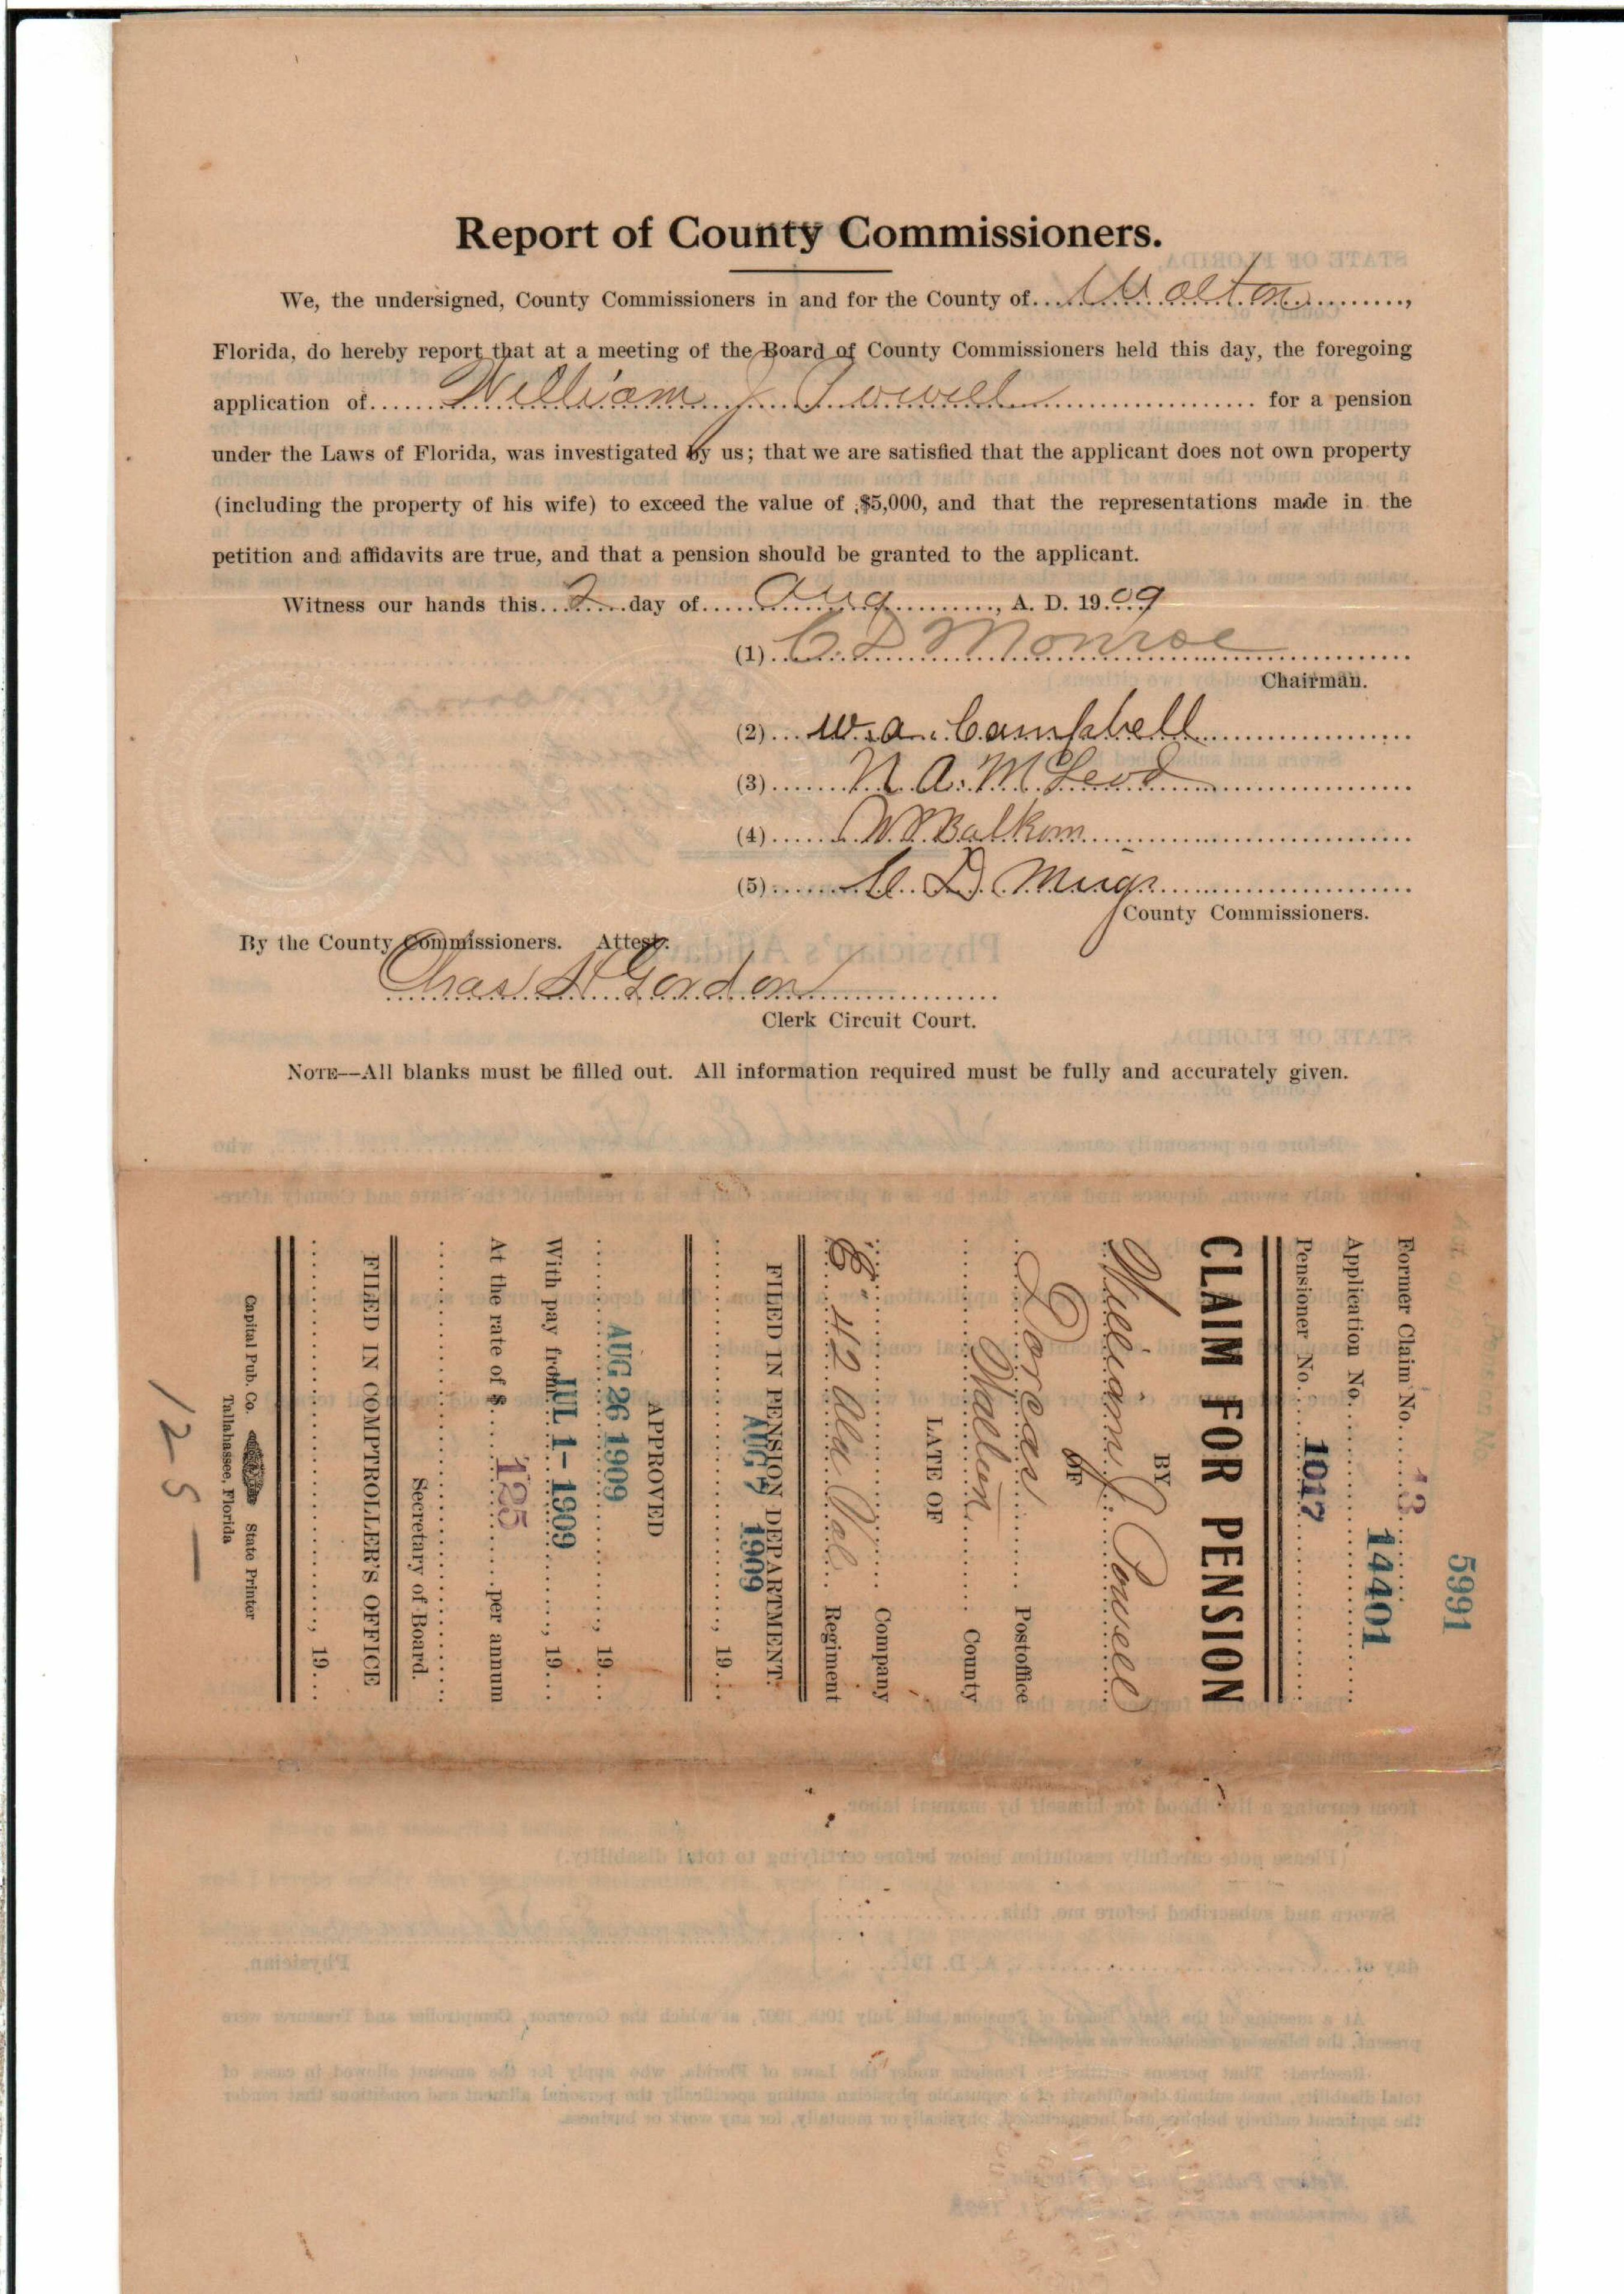 Report of County Commissioners.
We, the undersigned, County Commissioners in and for the County of Walton,
Florida, do hereby report that at a meeting of the Board of County Commissioners held this day, the foregoing
application of William J Powell for a pension
under the Laws of Florida, was investigated by us; that we are satisfied that the applicant does not own property
(including the property of his wife) to exceed the value of $5,000, and that the representations made in the
petition and affidavits are true, and that a pension should be granted to the applicant.
Witness our hands this 2 day of Aug, A. D. 1909
(1) C. D Monroe
Chairman.
(2) W. A. Campbell
(3) N A. McLeod
(4) Balkom
(5) D.
County Commissioners.
By the County Commissioners. Attest:
Chas H Gordon
Clerk Circuit Court.
NOTE—All blanks must be filled out. All information required must be fully and accurately given.
5991
Former Claim No. 13
14401
Application No.
Pensioner No. 1017
CLAIM FOR PENSION
BY
William J. Powell
OF
Dorcas Postoffice
Walton County
LATE OF
Company
42 Ala Vol. Regiment
FILED IN PENSION DEPARTMENT.
AUG 7 1909
, 19
APPROVED
AUG 26 1909
, 19
With pay from JUL 1 - 1909, 19
At the rate of $ 125 per annum
Secretary of Board.
FILED IN COMPTROLLER'S OFFICE
, 19
Capital Pub. Co. State Printer
Tallahassee, Florida
125 —